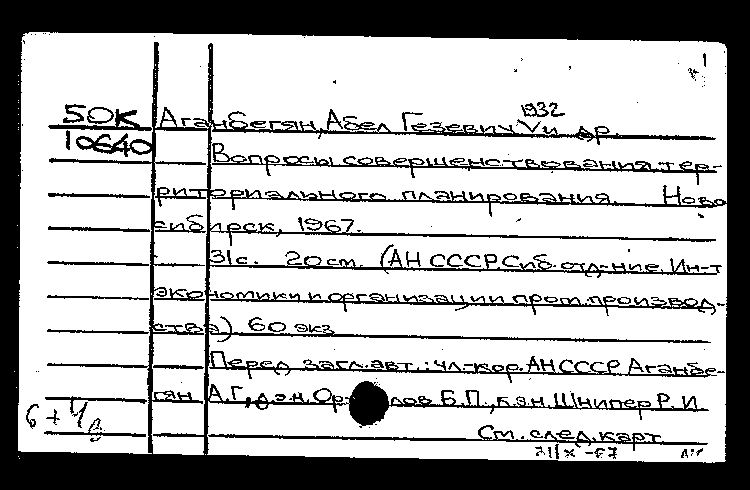 1
1932
50К Аганбегян, Абел Гезевич V и др.
10640 Вопросы совершенствования тер-
риториального планирования. Ново
сибирск, 1967.
31с. 20 cm. (АН СССР. Сиб. отд-ние. Ин-т
экономики и организации пром. производ-
ства) 60 экз
Перед загл. авт.: чл-кор. АН СССР Аганбе-
гян А.Г., Б.П., к.эн. Шнипер Р.И
6 + 4в
См. след. карт
31/X-67